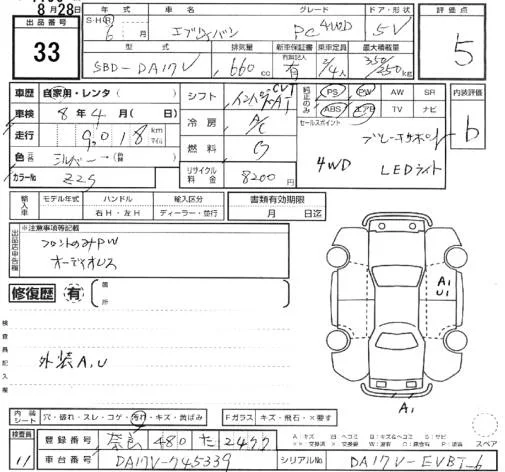 8月28日
出品番号
33
年式
車名
グレード
ドア・形状
S・H・R
6 月
エブリィバン
PC 4WD
5V
型式
排気量
新車保証書
乗車定員
最大積載量
SBD-DA17V
660 cc
内装記入
有
2/4人
350/250 kg
評価点
5
車歴 自家用・レンタ( )
車検 8年 4月 ( 日)
走行 9,018 km マイル
色 シルバー→
カラーNo Z2S
シフト インパネ AT
冷房 A/C
燃料 G
リサイクル料金 8200 円
純正のみ
PS PW AW SR
ABS エアB TV ナビ
セールスポイント
ブレーキサポート
4WD LEDライト
内装評価
b
輸入車
モデル年式 ハンドル 輸入区分
右H・左H ディーラー・並行
書類有効期限
月 日迄
出品店申告欄
※注意事項等記載
フロントのみPW
オーディオレス
修復歴 有
箇所
検査員記入欄
外装A,U
A1
U1
A1
内装シート 穴・破れ・スレ・コゲ・汚れ・キズ・黄ばみ
Fガラス キズ・飛石・×要す
スペア
検査員
11
登録番号 奈良 480 た 2477
車台番号 DA17V-745339
シリアルNo DA17V-EVBT-6